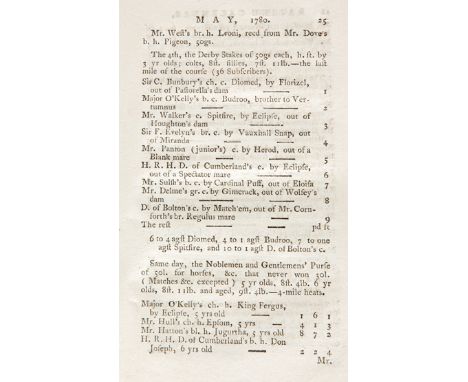 MAY, 1780. 25
Mr. West's br. h. Leoni, recd from Mr. Dove's
b. h. Pigeon, 50gs.
The 4th, the Derby Stakes of 50gs each, h. ft. by
3 yr olds; colts, 8ft. fillies, 7ft. 11lb.—the last
mile of the course (36 Subscribers).
Sir C. Bunbury's ch. c. Diomed, by Florizel,
out of Pastorella's dam — 1
Major O'Kelly's b. c. Budroo, brother to Ver-
tumnus — 2
Mr. Walker's c. Spitfire, by Eclipse, out of
Houghton's dam — 3
Sir F. Evelyn's br. c. by Vauxhall Snap, out
of Miranda — 4
Mr. Panton (junior's) c. by Herod, out of a
Blank mare — 5
H. R. H. D. of Cumberland's c. by Eclipse,
out of a Spectator mare — 6
Mr. Sulsh's b. c. by Cardinal Puff, out of Eloisa 7
Mr. Delme's gr. c. by Gimcrack, out of Wolsey's
dam — 8
D. of Bolton's c. by Match'em, out of Mr. Corn-
forth's br. Regulus mare — 9
The rest — pd ft
6 to 4 agst Diomed, 4 to 1 agst Budroo, 7 to one
agst Spitfire, and 10 to 1 agst D. of Bolton's c.
Same day, the Noblemen and Gentlemens' Purse
of 50l. for horses, &c. that never won 30l.
(Matches &c. excepted) 5 yr olds, 8ft. 4lb. 6 yr
olds, 8ft. 11lb and aged, 9ft. 4lb.—4-mile heats.
Major O'Kelly's ch. h. King Fergus,
by Eclipse, 5 yrs old — 1 6 1
Mr. Hull's ch. h. Epsom, 5 yrs — 4 1 3
Mr. Hatton's bl. h. Jugurtha, 5 yrs old 8 7 2
H. R. H. D. of Cumberland's b. h. Don
Joseph, 6 yrs old — 2 2 4
Mr.